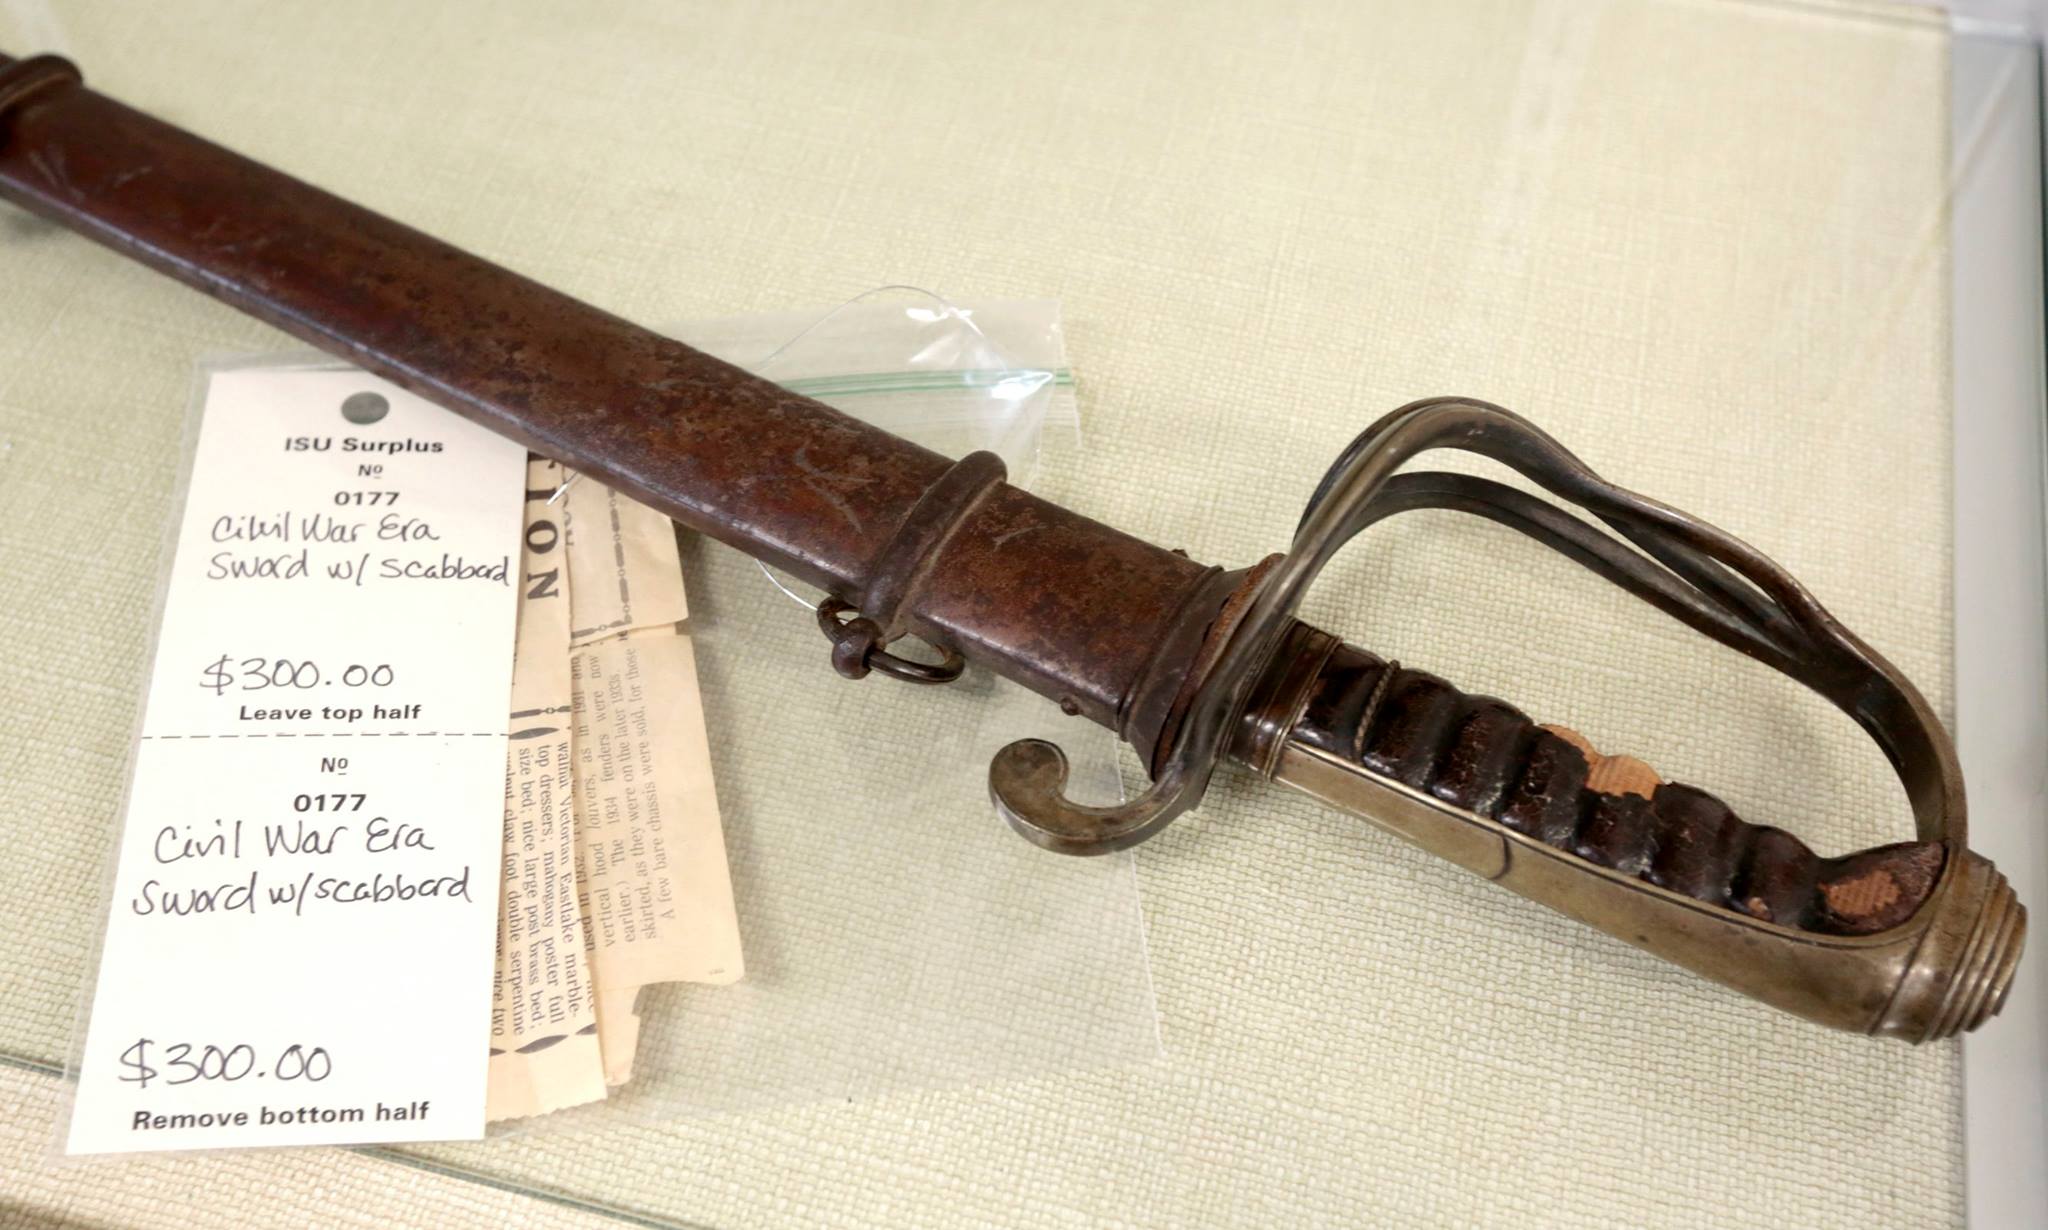 ISU Surplus
Nº
0177
Civil War Era
Sword w/ scabbard
$300.00
Leave top half
Nº
0177
Civil War Era
Sword w/scabbard
$300.00
Remove bottom half
ION
walnut Victorian Eastlake marble-
top dressers; mahogany poster full
size bed; nice large post brass bed;
claw foot double serpentine
nice two
vertical hood louvers, as in 1931 and
earlier.) The 1934 fenders were now
skirted, as they were on the later 1933s.
A few bare chassis were sold, for those